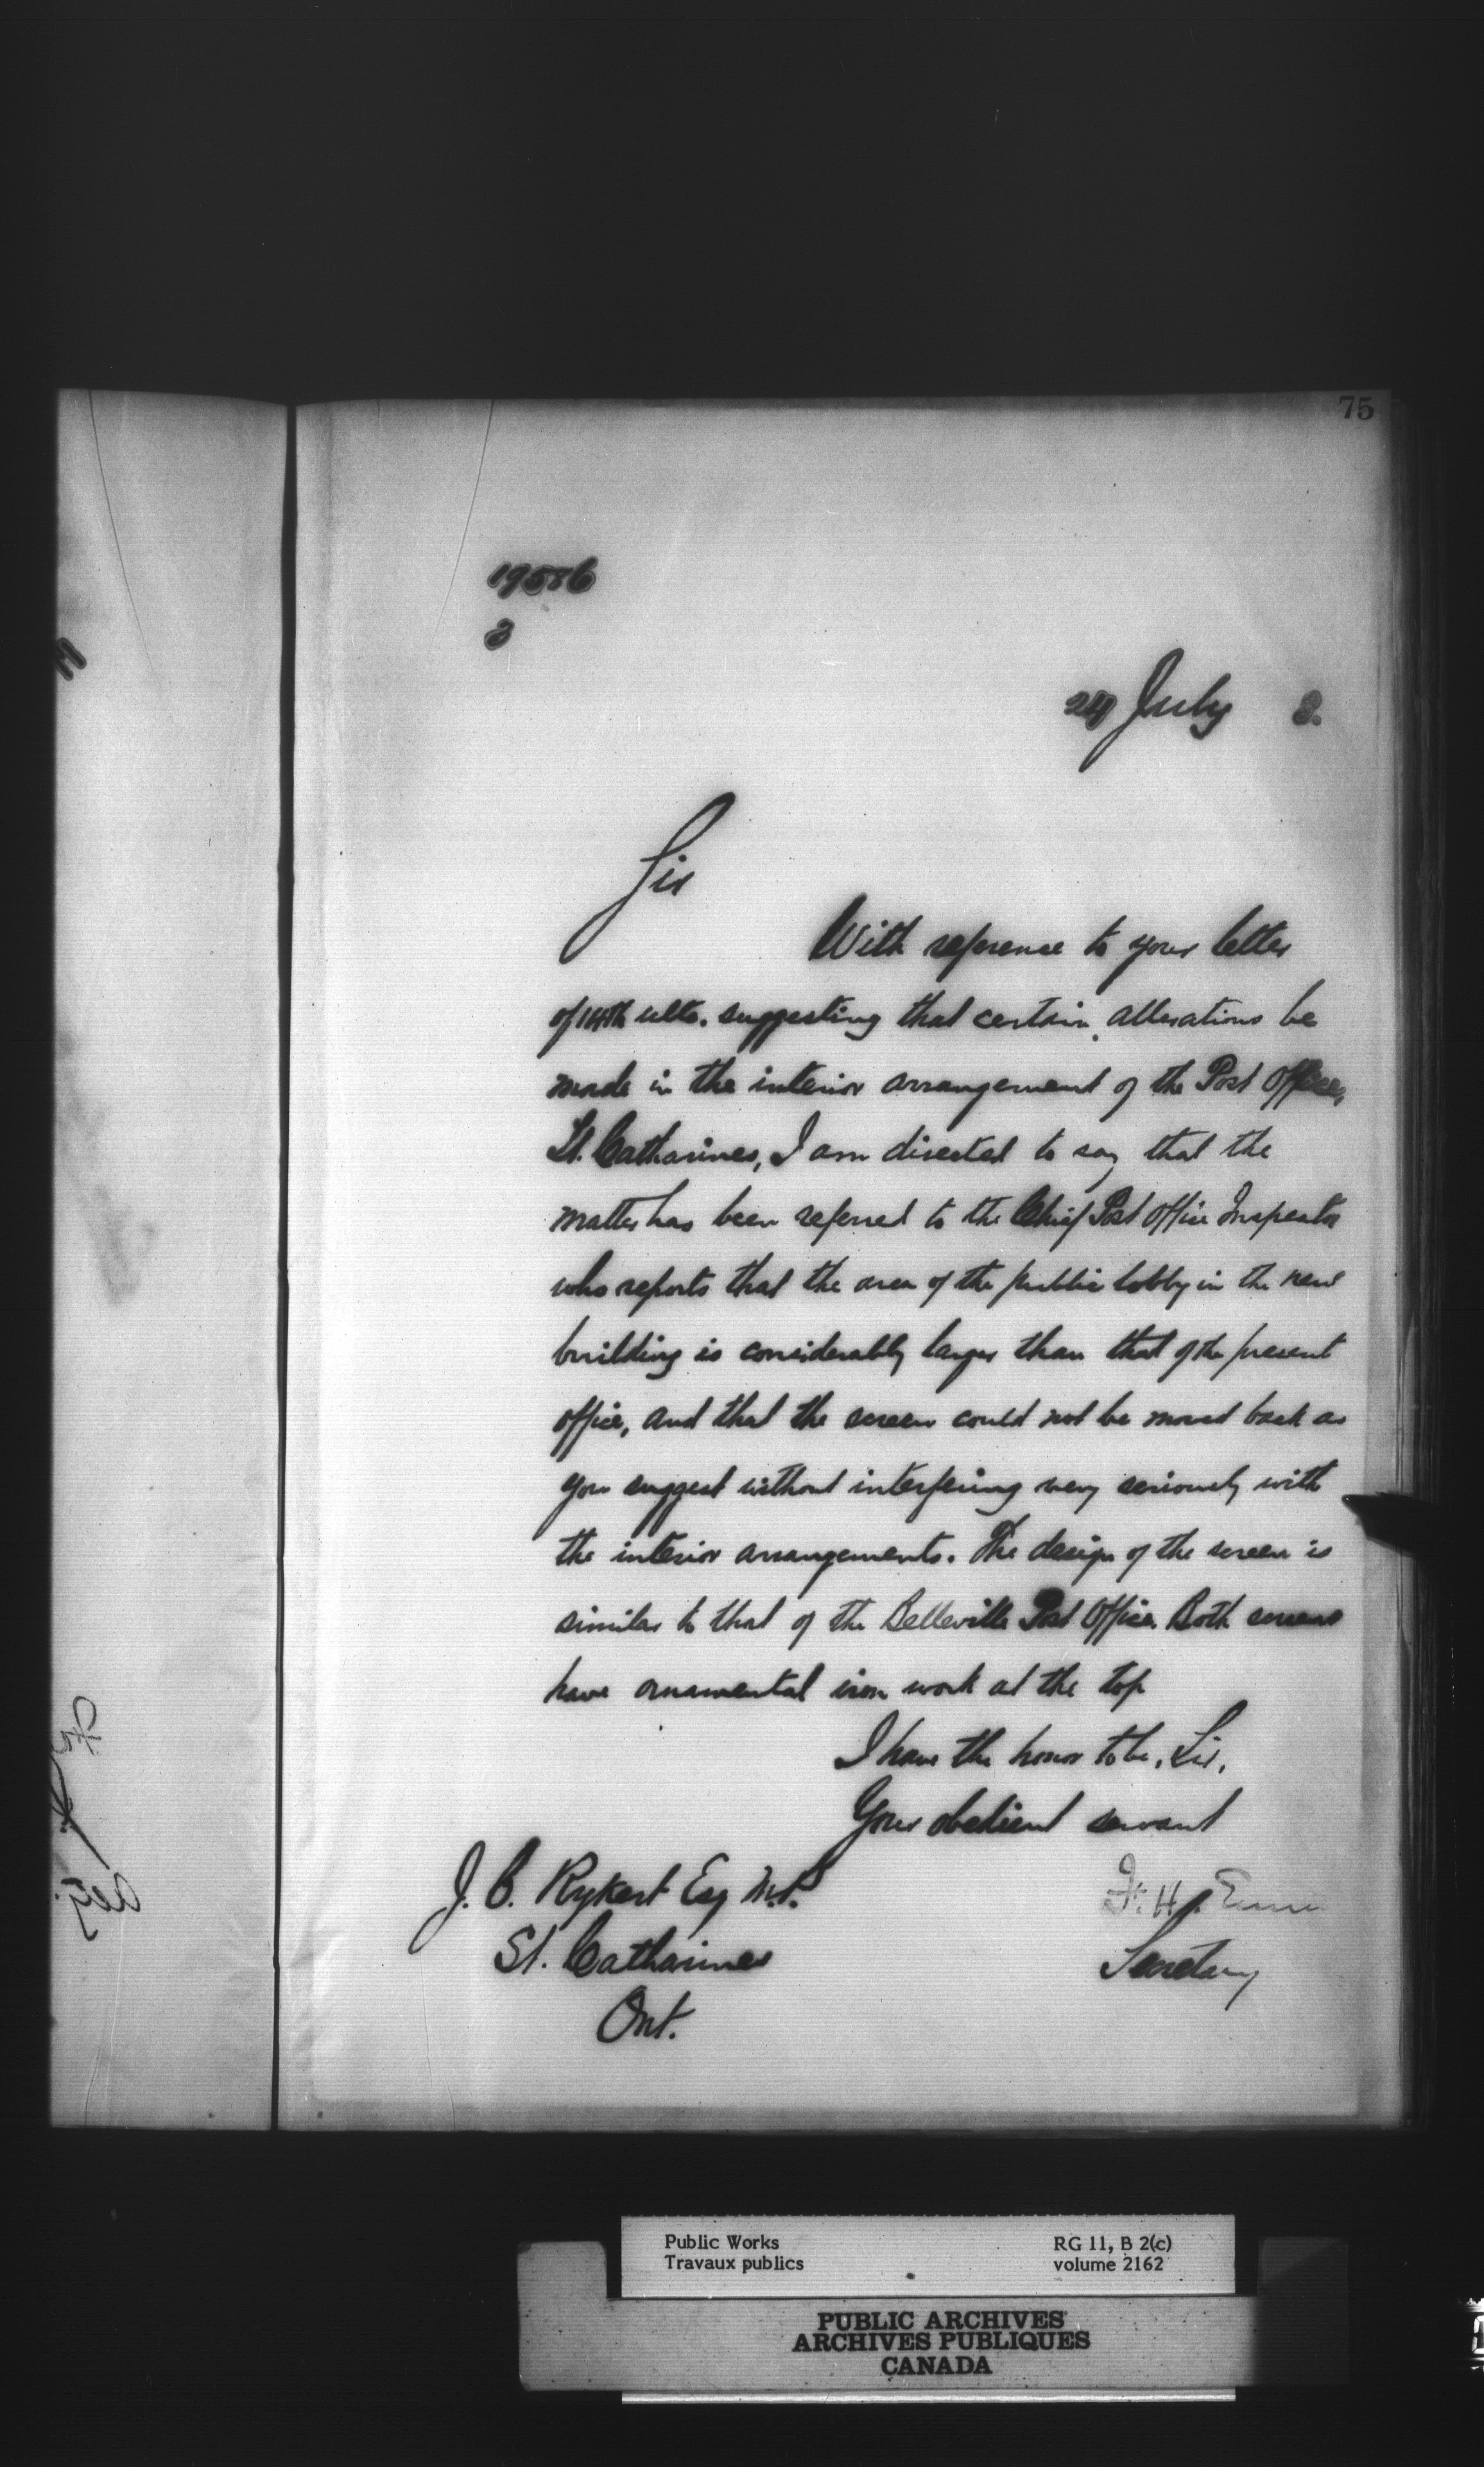 75
19586
3
24 July 3.
Sir
With reference to your letter
of 14th ulto. suggesting that certain alterations be
made in the interior arrangement of the Post Office,
St. Catharines, I am directed to say that the
matter has been referred to the Chief Post Office Inspector
who reports that the area of the public lobby in the new
building is considerably larger than that of the present
office, and that the screen could not be moved back as
you suggest without interfering very seriously with
the interior arrangements. The design of the screen is
similar to that of the Belleville Post Office. Both screens
have ornamental iron work at the top
I have the honor to be, Sir,
Your obedient servant
J. C. Rykert Esq M.P.
F. H. Ennis
St. Catharines
Secretary
Ont.
Public Works
Travaux publics
RG 11, B 2(c)
volume 2162
PUBLIC ARCHIVES
ARCHIVES PUBLIQUES
CANADA